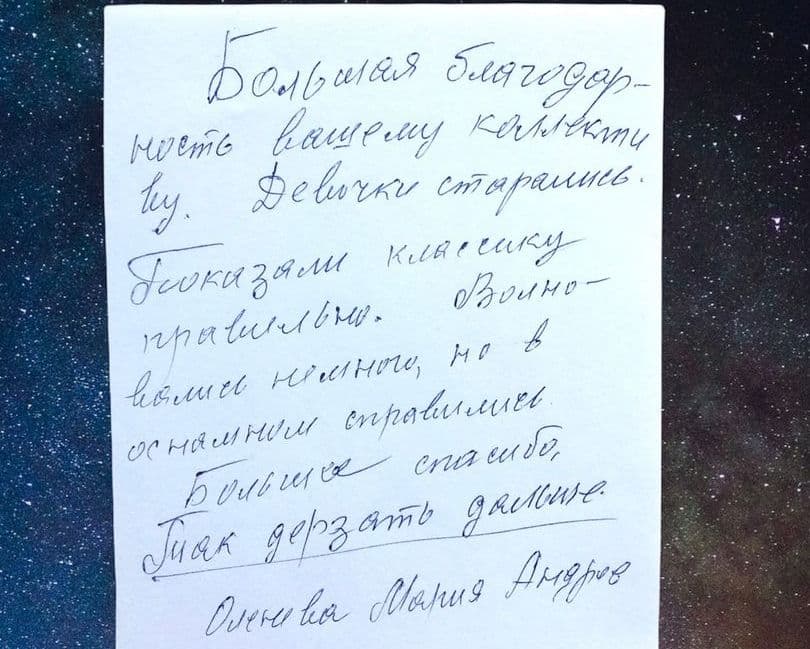 Большая благодар-
ность вашему коллекти
ву. Девочки старались.
Показали классику
правильно. Волно-
вались немного, но в
оснамном справились.
Большое спасибо,
Так дерзать дальше.
Оленева Мария Андрев